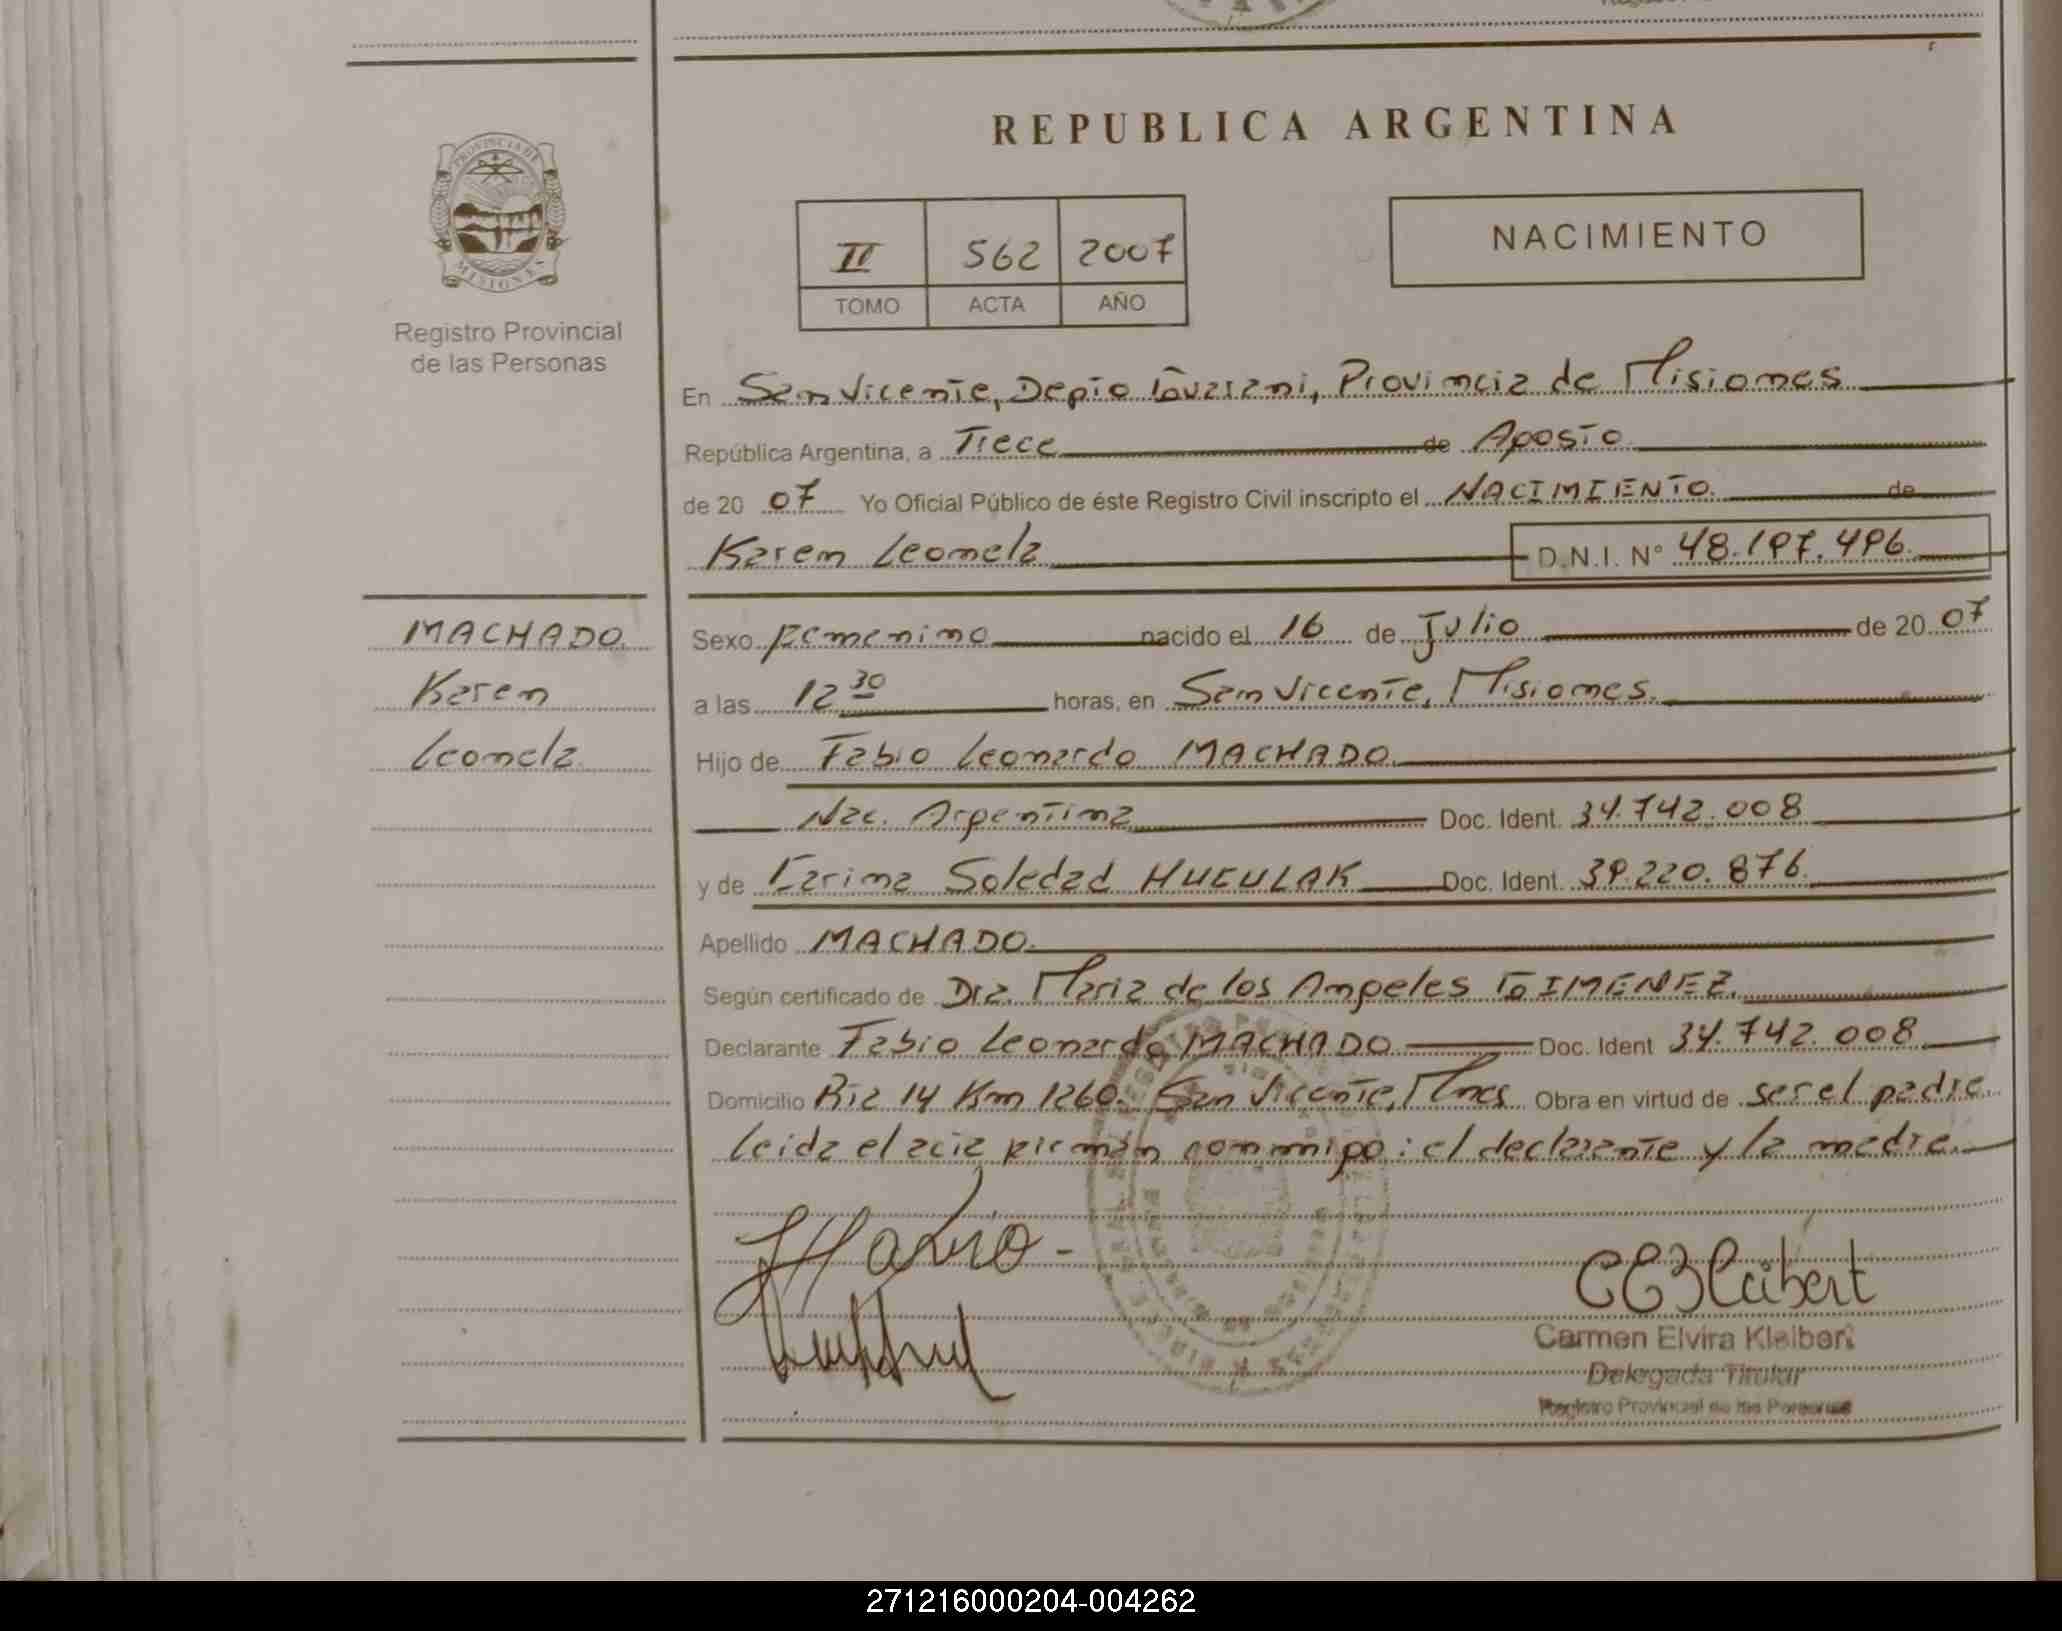 REPUBLICA ARGENTINA
PROVINCIA DE
MISIONES
Registro Provincial
de las Personas
II 562 2007
TOMO ACTA AÑO
NACIMIENTO
En San Vicente, Depto Guarani, Provincia de Misiones
República Argentina, a Trece de Agosto
de 20 07 Yo Oficial Público de éste Registro Civil inscripto el NACIMIENTO de
Karen Leonela D.N.I. N° 48.197.496
MACHADO
Karen
Leonela
Sexo femenino nacido el 16 de Julio de 20 07
a las 12 30 horas, en San Vicente, Misiones.
Hijo de Fabio Leonardo MACHADO
Nac. Argentina Doc. Ident. 34.742.008
y de Carina Soledad HUCULAK Doc. Ident. 39.220.876
Apellido MACHADO
Según certificado de Dra. Maria de los Angeles GIMENEZ.
Declarante Fabio Leonardo MACHADO Doc. Ident 34.742.008
Domicilio Rta 14 Km 1260. San Vicente, Mnes Obra en virtud de ser el padre
leida el acta firman conmigo: el declarante y la madre.
Carmen Elvira Kleibert
Delegada Titular
Registro Provincial de las Personas
271216000204-004262